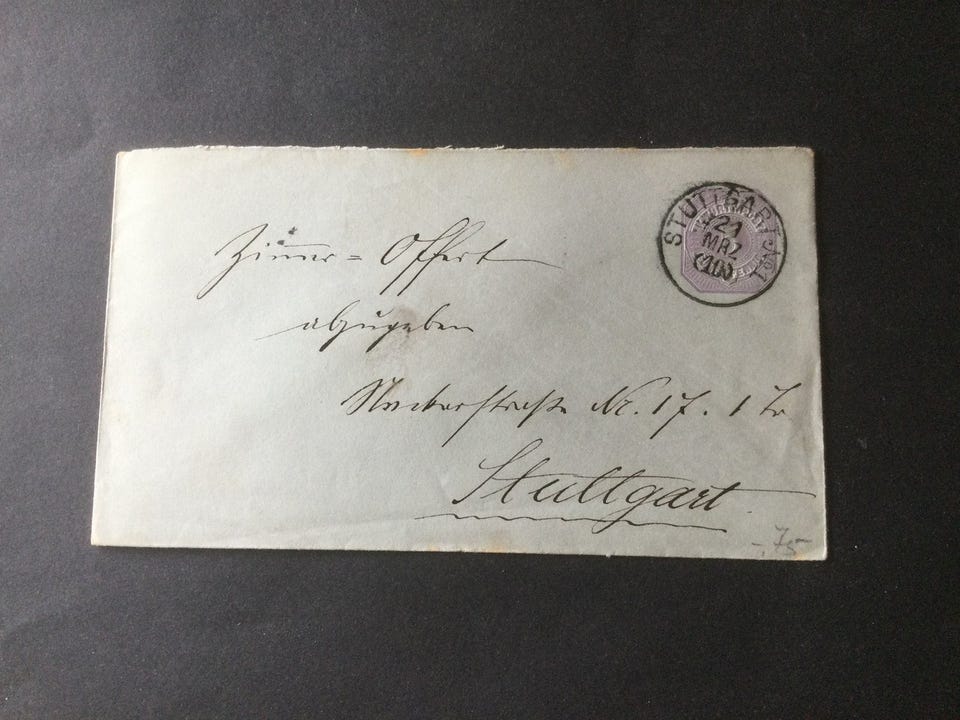 Zimmer = Offert
abzugeben
Neckarstraße Nr. 17. 1 Tr
Stuttgart
STUTTGART No 1
21
MRZ
-.75